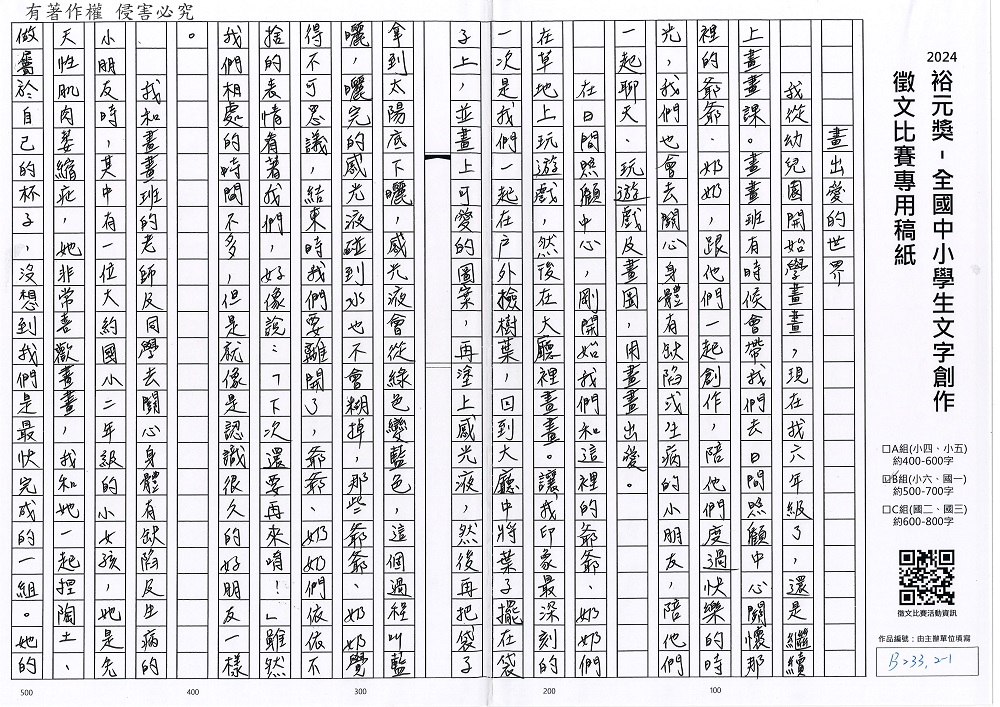 有著作權 侵害必究
2024
裕元獎-全國中小學生文字創作
徵文比賽專用稿紙
□A組(小四、小五)
約400-600字
☑B組(小六、國一)
約500-700字
□C組(國二、國三)
約600-800字
徵文比賽活動資訊
作品編號:由主辦單位填寫
B233,2-1
畫出愛的世界
我從幼兒園開始學畫畫,現在我六年級了,還是繼續
上畫畫課。畫畫班有時候會帶我們去日間照顧中心關懷那
裡的爺爺、奶奶,跟他們一起創作,陪他們度過快樂的時
光,我們也會去關心身體有缺陷或生病的小朋友,陪他們
一起聊天、玩遊戲及畫圖,用畫畫出愛。
在日間照顧中心,剛開始我們和這裡的爺爺、奶奶們
在草地上玩遊戲,然後在大廳裡畫畫。讓我印象最深刻的
一次是我們一起在戶外檢樹葉,回到大廳中將葉子擺在袋
子上,並畫上可愛的圖案,再塗上感光液,然後再把袋子
拿到太陽底下曬,感光液會從綠色變藍色,這個過程叫藍
曬,曬完的感光液碰到水也不會糊掉,那些爺爺、奶奶覺
得不可思議,結束時我們要離開了,爺爺、奶奶們依依不
捨的表情看著我們,好像說:「下次還要再來唷!」雖然
我們相處的時間不多,但是就像是認識很久的好朋友一樣
。
我和畫畫班的老師及同學去關心身體有缺陷及生病的
小朋友時,其中有一位大約國小二年級的小女孩,她是先
天性肌肉萎縮症,她非常喜歡畫畫,我和她一起捏陶土、
做屬於自己的杯子,沒想到我們是最快完成的一組。她的
100
200
300
400
500